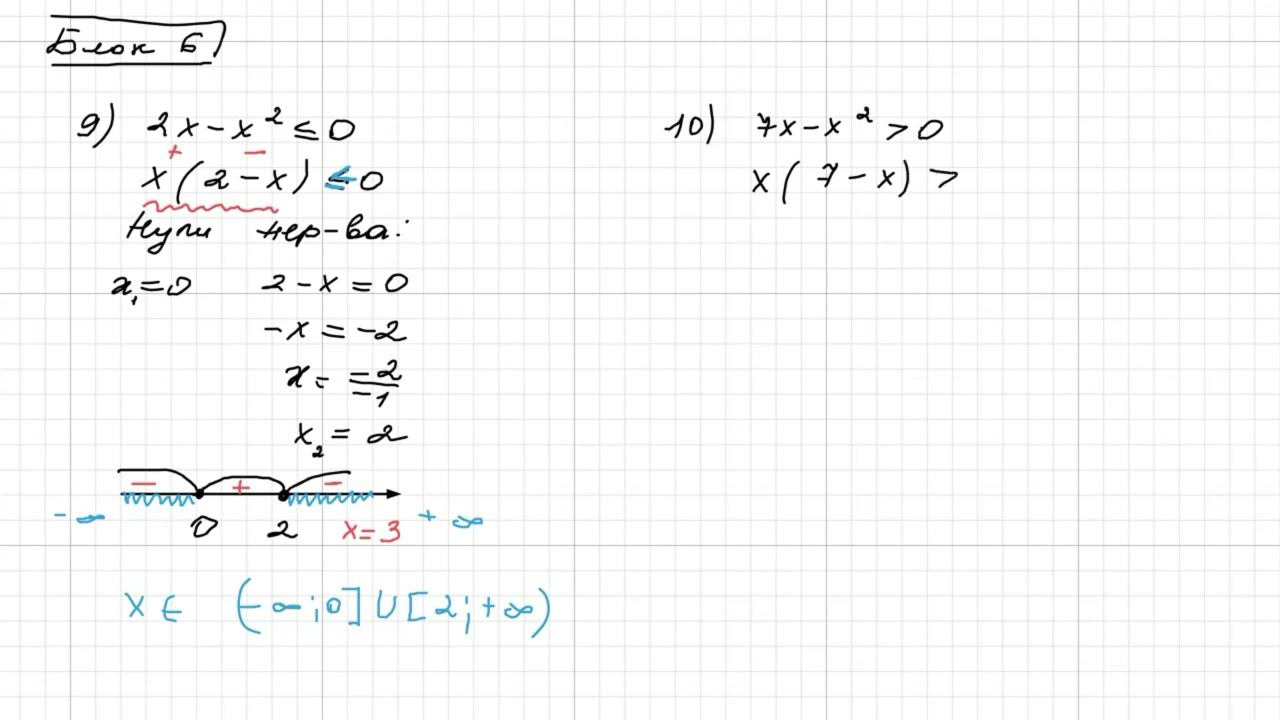 Блок 6
9) 2x - x² ≤ 0
+ -
x(2 - x) ≤ 0
Нули нер-ва:
x₁ = 0 2 - x = 0
-x = -2
x = -2/-1
x₂ = 2
- + -
-∞ 0 2 x = 3 +∞
x ∈ (-∞; 0] ∪ [2; +∞)
10) 7x - x² > 0
x(7 - x) >